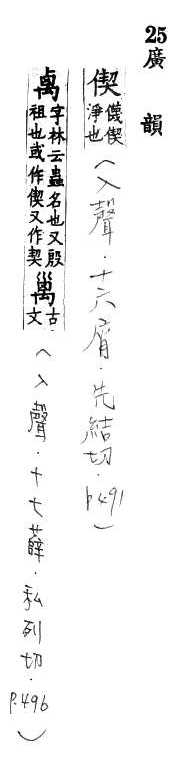 25廣 韻
偰 偰淨也（入聲．十六屑．先結切．p.491）
禼 字林云蟲名也又殷祖也或作偰又作契 古文（入聲．十七薛．私列切．P.496）